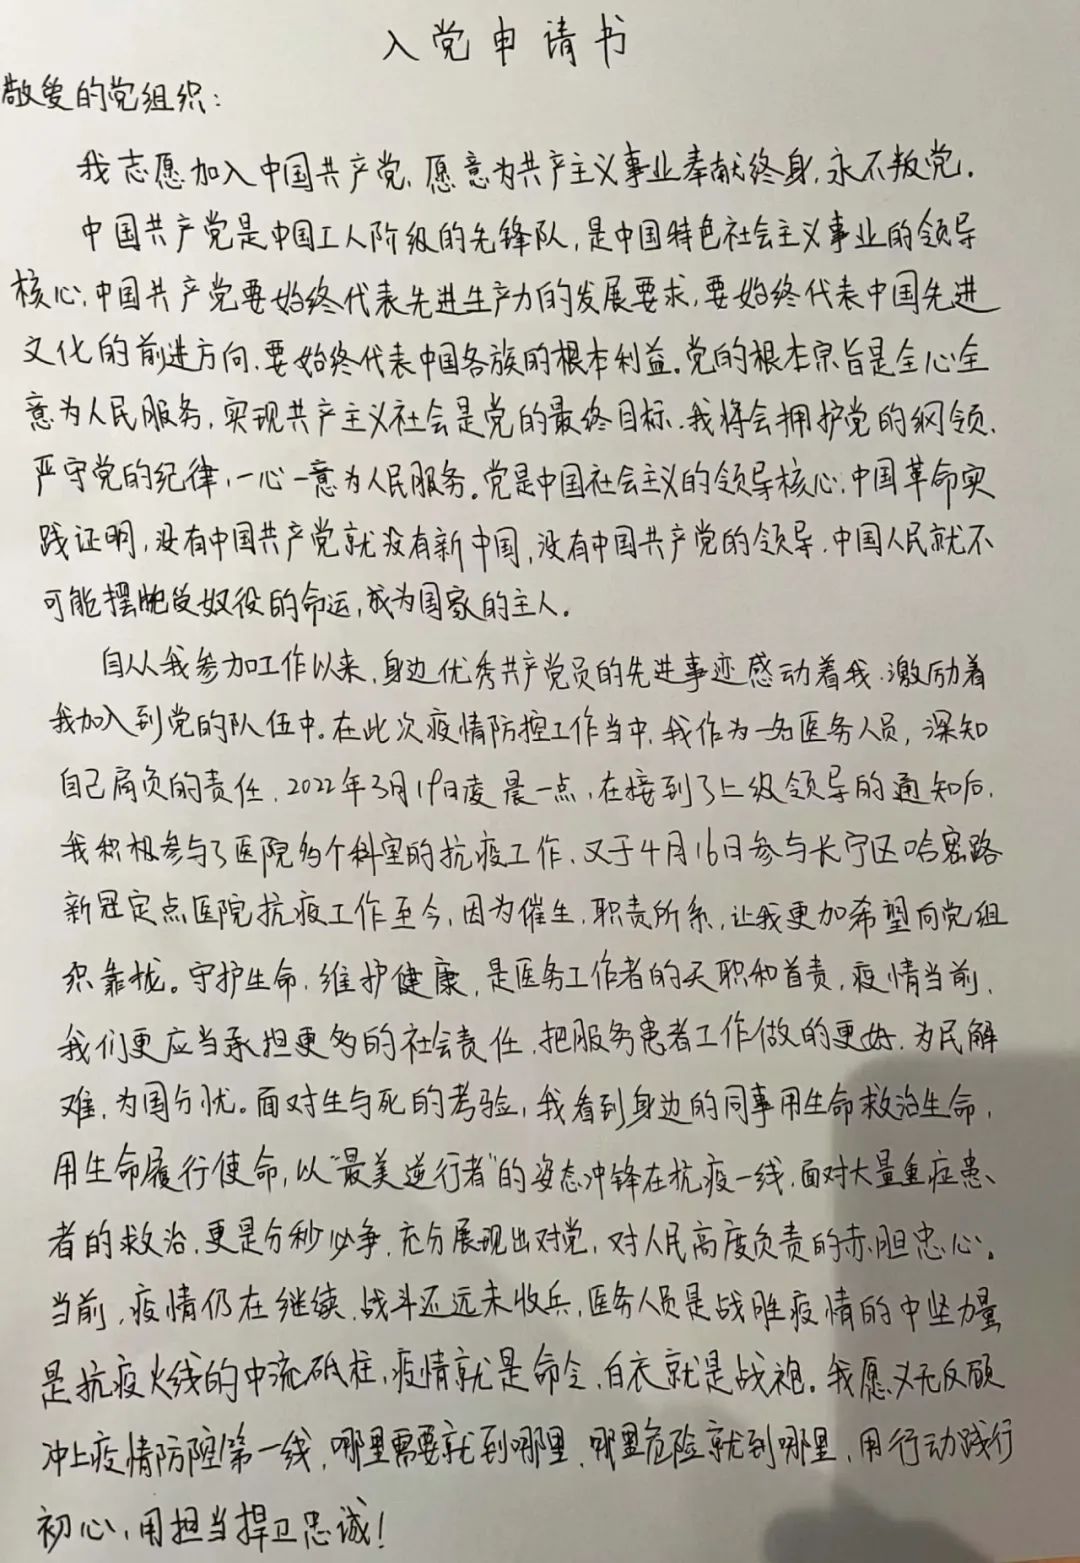 入党申请书
敬爱的党组织:
我志愿加入中国共产党,愿意为共产主义事业奉献终身,永不叛党.
中国共产党是中国工人阶级的先锋队,是中国特色社会主义事业的领导
核心,中国共产党要始终代表先进生产力的发展要求,要始终代表中国先进
文化的前进方向,要始终代表中国各族的根本利益。党的根本宗旨是全心全
意为人民服务,实现共产主义社会是党的最终目标.我将会拥护党的纲领,
严守党的纪律,一心一意为人民服务。党是中国社会主义的领导核心,中国革命实
践证明,没有中国共产党就没有新中国,没有中国共产党的领导,中国人民就不
可能摆脱受奴役的命运,成为国家的主人。
自从我参加工作以来,身边优秀共产党员的先进事迹感动着我,激励着
我加入到党的队伍中。在此次疫情防控工作当中,我作为一名医务人员,深知
自己肩负的责任,2022年3月19日凌晨一点,在接到了上级领导的通知后,
我积极参与了医院多个科室的抗疫工作,又于4月16日参与长宁区哈密路
新冠定点医院抗疫工作至今,因为催生,职责所系,让我更加希望向党组
织靠拢。守护生命,维护健康,是医务工作者的天职和首责,疫情当前,
我们更应当承担更多的社会责任,把服务患者工作做的更好,为民解
难,为国分忧。面对生与死的考验,我看到身边的同事用生命救治生命,
用生命履行使命,以“最美逆行者”的姿态冲锋在抗疫一线,面对大量重症患
者的救治,更是分秒必争,充分展现出对党,对人民高度负责的赤胆忠心。
当前,疫情仍在继续,战斗还远未收兵,医务人员是战胜疫情的中坚力量
是抗疫火线的中流砥柱,疫情就是命令,白衣就是战袍。我愿义无反顾
冲上疫情防控第一线,哪里需要就到哪里,哪里危险就到哪里,用行动践行
初心,用担当捍卫忠诚!